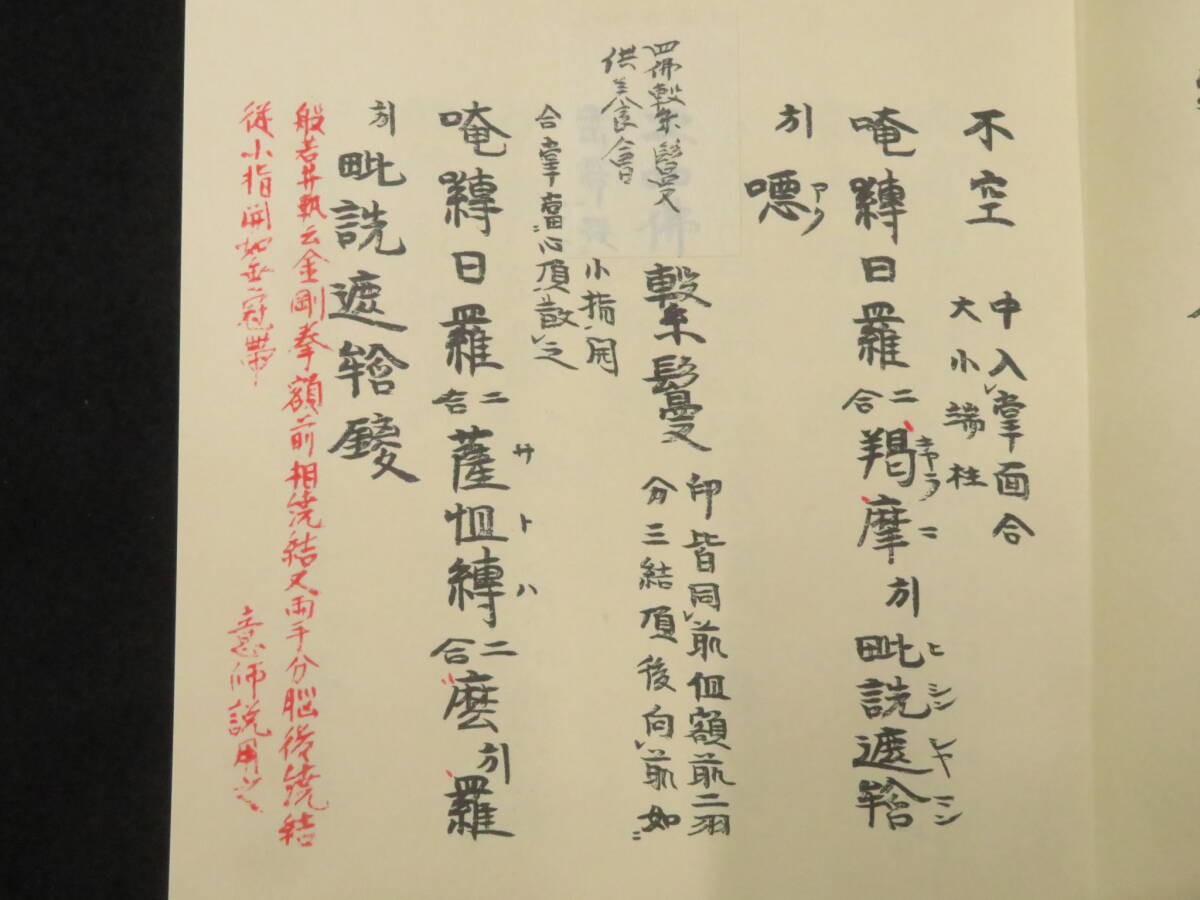 不空 中入掌面合
大小端柱
唵 嚩日羅二合 羯摩引 毗詵遮𤚥
キヤラマ ヒシンシヤマン
引 噁
アク
四佛繫鬘又
供養會
繫鬘 印皆同前但額前二羽
分三結頂後向前如
小指開
合掌當心頂散之
唵 嚩日羅二合 薩怛嚩二合 麼引 羅
サトハ
引 毗詵遮𤚥鑁
般若井執云金剛拳額前相繞結又両手分脳後繞結
從小指開如垂冠帯
意師説用之